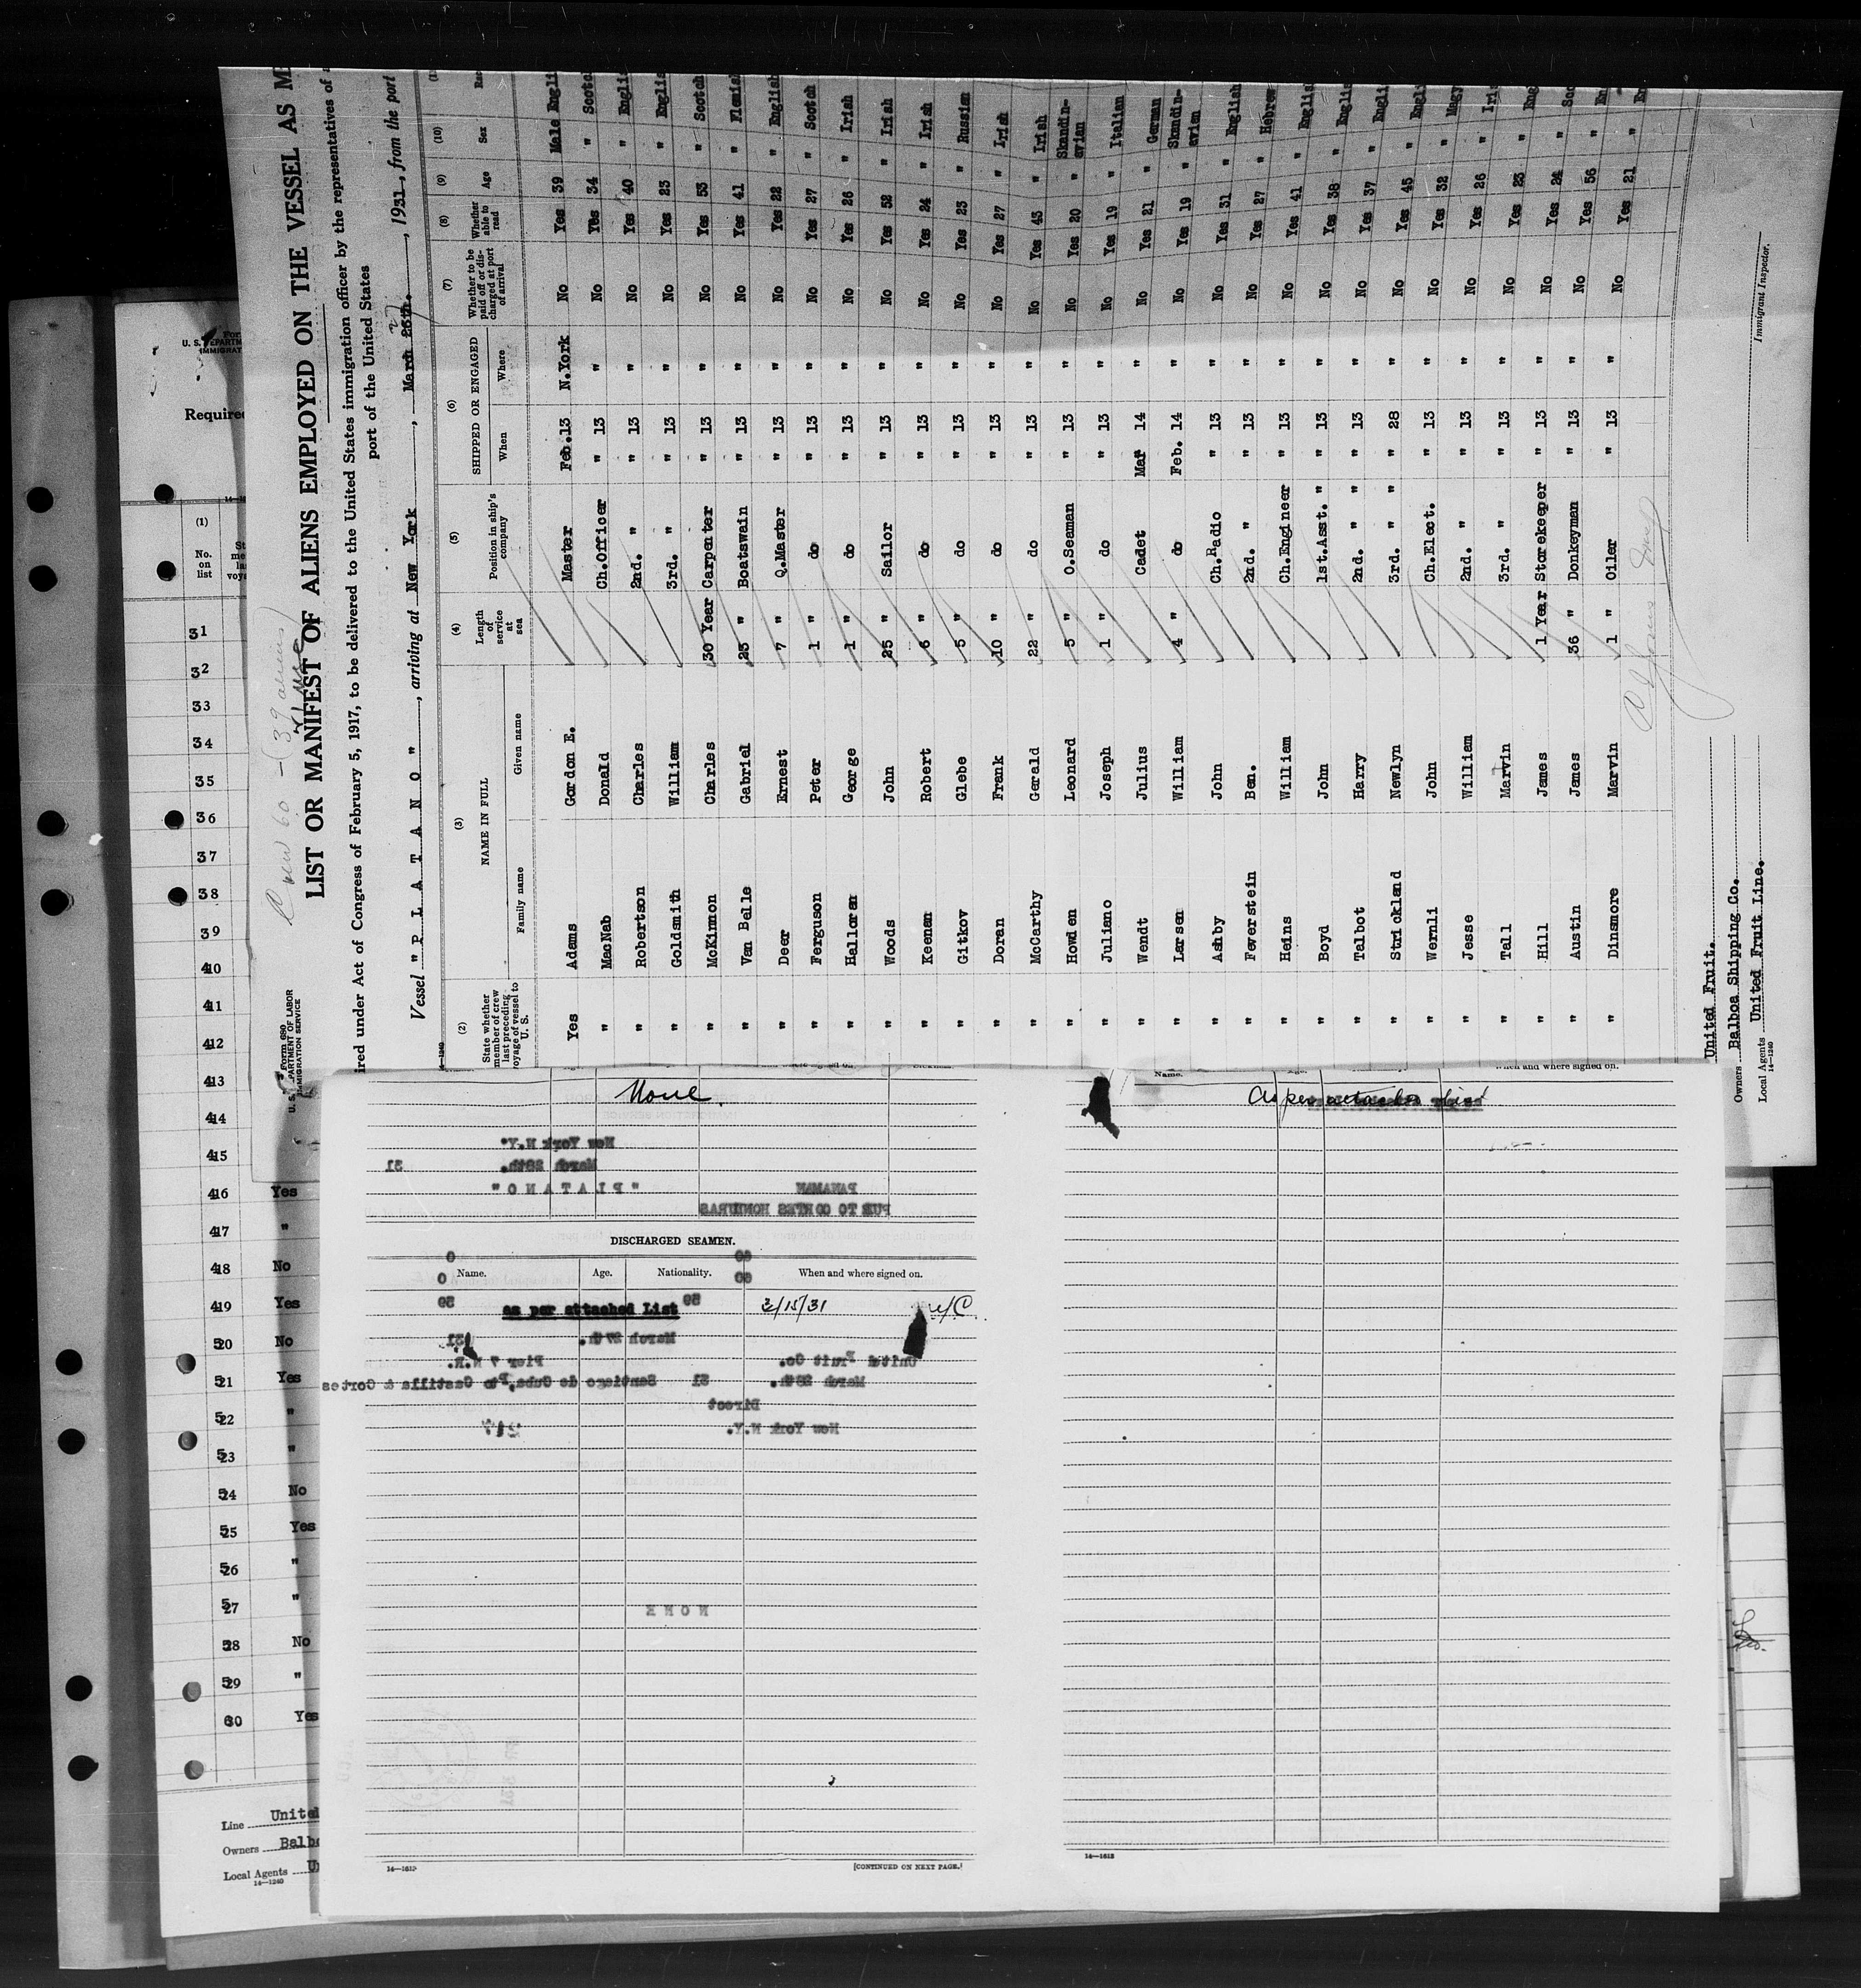 Form 680
U. S. DEPARTMENT OF LABOR
IMMIGRATION SERVICE
Crew 60 - (39 aliens)
LIST OR MANIFEST OF ALIENS EMPLOYED ON THE VESSEL AS ME
ired under Act of Congress of February 5, 1917, to be delivered to the United States immigration officer by the representatives of
port of the United States
Vessel "P L A T A N O", arriving at New York, March 26th. 27, 1931, from the port
(2) (3) (4) (5) (6) (7) (8) (9) (10)
State whether member of crew last preceding voyage of vessel to U. S.
NAME IN FULL
Family name Given name
Length of service at sea
Position in ship's company
SHIPPED OR ENGAGED
When Where
Whether to be paid off or discharged at port of arrival
Whether able to read
Age Sex
Yes Adams Gordon E. Master Feb.13 N.York No Yes 39 Male Engli
" MacNab Donald Ch.Officer " 13 " No Yes 34 " Scotc
" Robertson Charles 2nd. " " 13 " No Yes 40 " Engli
" Goldsmith William 3rd. " " 13 " No Yes 23 " Englis
" McKinnon Charles 30 Year Carpenter " 13 " No Yes 53 " Scotch
" Van Belle Gabriel 23 " Boatswain " 13 " No Yes 41 " Flemish
" Deer Ernest 7 " Q.Master " 13 " No Yes 22 " English
" Ferguson Peter 1 " do " 13 " No Yes 27 " Scotch
" Halloran George 1 " do " 13 " No Yes 26 " Irish
" Woods John 25 " Sailor " 13 " No Yes 52 " Irish
" Keenan Robert 6 " do " 13 " No Yes 24 " Irish
" Gitkov Glebe 5 " do " 13 " No Yes 23 " Russian
" Doran Frank 10 " do " 13 " No Yes 27 " Irish
" McCarthy Gerald 22 " do " 13 " No Yes 43 " Irish
" Howden Leonard 5 " O.Seaman " 13 " No Yes 20 " Skandin-avian
" Juliano Joseph 1 " do " 13 " No Yes 19 " Italian
" Wendt Julius Cadet Mar 14 " No Yes 21 " German
" Larsen William 4 " do Feb. 14 " No Yes 19 " Skandin-avian
" Ashby John Ch.Radio " 13 " No Yes 31 " English
" Feverstein Ben. 2nd. " " 13 " No Yes 27 " Hebrew
" Heins William Ch.Engineer " 13 " No Yes 41 " Englis
" Boyd John 1st.Asst. " " 13 " No Yes 38 " Englis
" Talbot Harry 2nd. " " " 13 " No Yes 37 " Engli
" Strickland Newlyn 3rd. " " " 28 " No Yes 45 " Engli
" Wernli John Ch.Elect. " 13 " No Yes 32 " Magy
" Jesse William 2nd. " " 13 " No Yes 26 " Iri
" Tall Marvin 3rd. " " 13 " No Yes 23 " Eng
" Hill James 1 Year Storekeeper " 13 " No Yes 24 " Sco
" Austin James 36 " Donkeyman " 13 " No Yes 56 " En
" Dinsmore Marvin 1 " Oiler " 13 " No Yes 21 " En
United Fruit.
Owners Balboa Shipping Co.
Local Agents United Fruit Line.
14—1240
Immigrant Inspector.
Form
U. S. DEPARTM
IMMIGRAT
Require
(1)
No. on list
31
32
33
34
35
36
37
38
39
40
41
42
43
44
45
46 Yes
47 "
48 No
49 Yes
50 No
51 Yes
52 "
53 "
54 No
55 Yes
56 "
57 "
58 No
59 "
60 Yes
Line United
Owners Balbo
Local Agents U
14—1240
None.
New York N.Y.
March 28th. 31
"P L A T A N O" PANAMAN
PUERTO CORTES HONDURAS
DISCHARGED SEAMEN.
Name. Age. Nationality. When and where signed on.
as per attached List 2/15/31
March 27th. 31
Pier 7 N.R. United Fruit Co.
March 28th. 31 Santiago de Cuba, Pto Castilla & Cortes
Direct
New York N.Y.
N O N E
14—1613
[CONTINUED ON NEXT PAGE.]
Name. When and where signed on.
As per attached list
14—1613